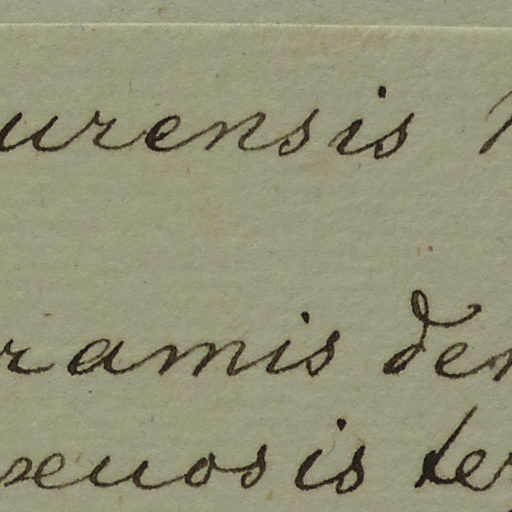 urensis
ramis den
xuosis ter